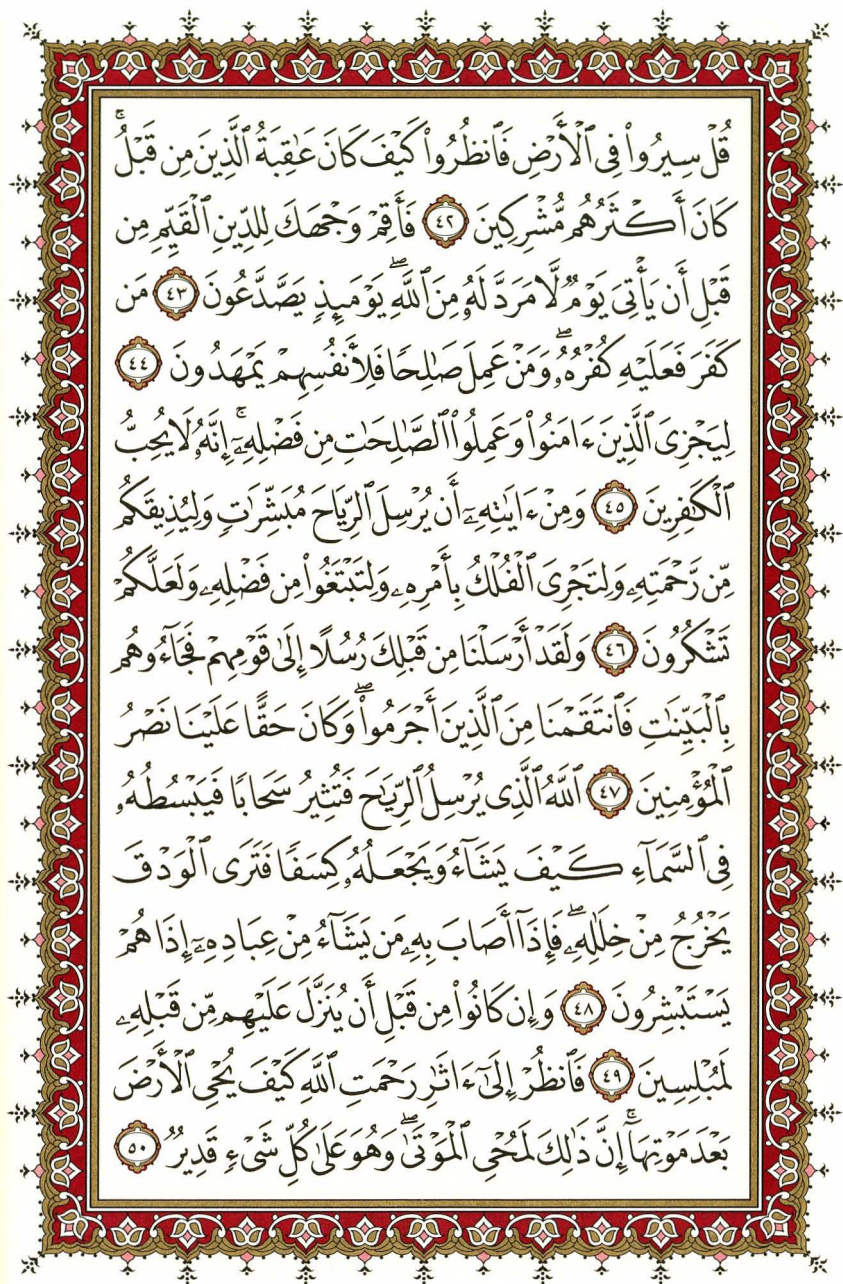 قُلْ سِيرُوا۟ فِى ٱلْأَرْضِ فَٱنظُرُوا۟ كَيْفَ كَانَ عَـٰقِبَةُ ٱلَّذِينَ مِن قَبْلُ ۚ
كَانَ أَكْثَرُهُم مُّشْرِكِينَ ٤٢ فَأَقِمْ وَجْهَكَ لِلدِّينِ ٱلْقَيِّمِ مِن
قَبْلِ أَن يَأْتِىَ يَوْمٌ لَّا مَرَدَّ لَهُۥ مِنَ ٱللَّهِ ۖ يَوْمَئِذٍ يَصَّدَّعُونَ ٤٣ مَن
كَفَرَ فَعَلَيْهِ كُفْرُهُۥ ۖ وَمَنْ عَمِلَ صَـٰلِحًا فَلِأَنفُسِهِمْ يَمْهَدُونَ ٤٤
لِيَجْزِىَ ٱلَّذِينَ ءَامَنُوا۟ وَعَمِلُوا۟ ٱلصَّـٰلِحَـٰتِ مِن فَضْلِهِۦٓ ۚ إِنَّهُۥ لَا يُحِبُّ
ٱلْكَـٰفِرِينَ ٤٥ وَمِنْ ءَايَـٰتِهِۦٓ أَن يُرْسِلَ ٱلرِّيَاحَ مُبَشِّرَٰتٍ وَلِيُذِيقَكُم
مِّن رَّحْمَتِهِۦ وَلِتَجْرِىَ ٱلْفُلْكُ بِأَمْرِهِۦ وَلِتَبْتَغُوا۟ مِن فَضْلِهِۦ وَلَعَلَّكُمْ
تَشْكُرُونَ ٤٦ وَلَقَدْ أَرْسَلْنَا مِن قَبْلِكَ رُسُلًا إِلَىٰ قَوْمِهِمْ فَجَآءُوهُم
بِٱلْبَيِّنَـٰتِ فَٱنتَقَمْنَا مِنَ ٱلَّذِينَ أَجْرَمُوا۟ ۖ وَكَانَ حَقًّا عَلَيْنَا نَصْرُ
ٱلْمُؤْمِنِينَ ٤٧ ٱللَّهُ ٱلَّذِى يُرْسِلُ ٱلرِّيَـٰحَ فَتُثِيرُ سَحَابًا فَيَبْسُطُهُۥ
فِى ٱلسَّمَآءِ كَيْفَ يَشَآءُ وَيَجْعَلُهُۥ كِسَفًا فَتَرَى ٱلْوَدْقَ
يَخْرُجُ مِنْ خِلَـٰلِهِۦ ۖ فَإِذَآ أَصَابَ بِهِۦ مَن يَشَآءُ مِنْ عِبَادِهِۦٓ إِذَا هُمْ
يَسْتَبْشِرُونَ ٤٨ وَإِن كَانُوا۟ مِن قَبْلِ أَن يُنَزَّلَ عَلَيْهِم مِّن قَبْلِهِۦ
لَمُبْلِسِينَ ٤٩ فَٱنظُرْ إِلَىٰٓ ءَاثَـٰرِ رَحْمَتِ ٱللَّهِ كَيْفَ يُحْىِ ٱلْأَرْضَ
بَعْدَ مَوْتِهَآ ۚ إِنَّ ذَٰلِكَ لَمُحْىِ ٱلْمَوْتَىٰ ۖ وَهُوَ عَلَىٰ كُلِّ شَىْءٍ قَدِيرٌ ٥٠